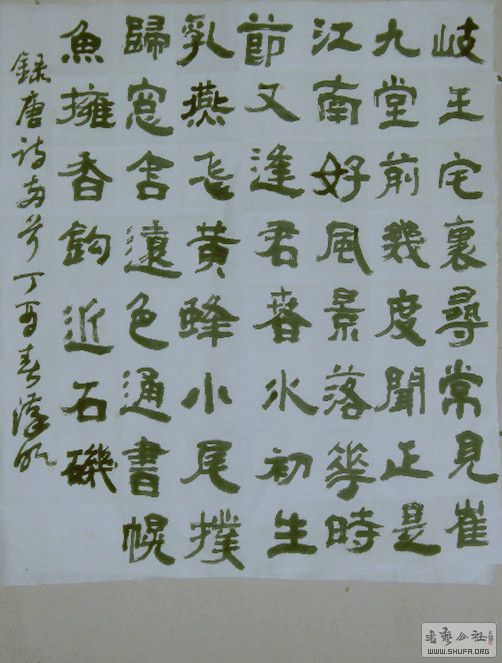 岐王宅裏尋常見崔
九堂前幾度聞正是
江南好風景落花時
節又逢君春水初生
乳燕飛黃蜂小尾撲
歸窓含遠色通書幌
魚擁香鈎近石磯
錄唐詩兩首丁酉春漢
書藝公社
WWW.SHUFA.ORG